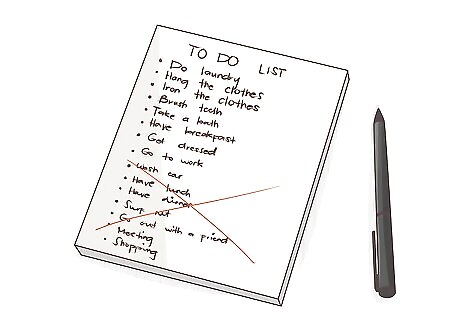 TO DO LIST
• Do laundry
• Hang the clothes
• Iron the clothes
• Brush teeth
• Take a bath
• Have breakfast
• Get dressed
• Go to work
• Wash car
• Have lunch
• Have dinner
• Surf net
• Go out with a friend
• Meeting
• Shopping